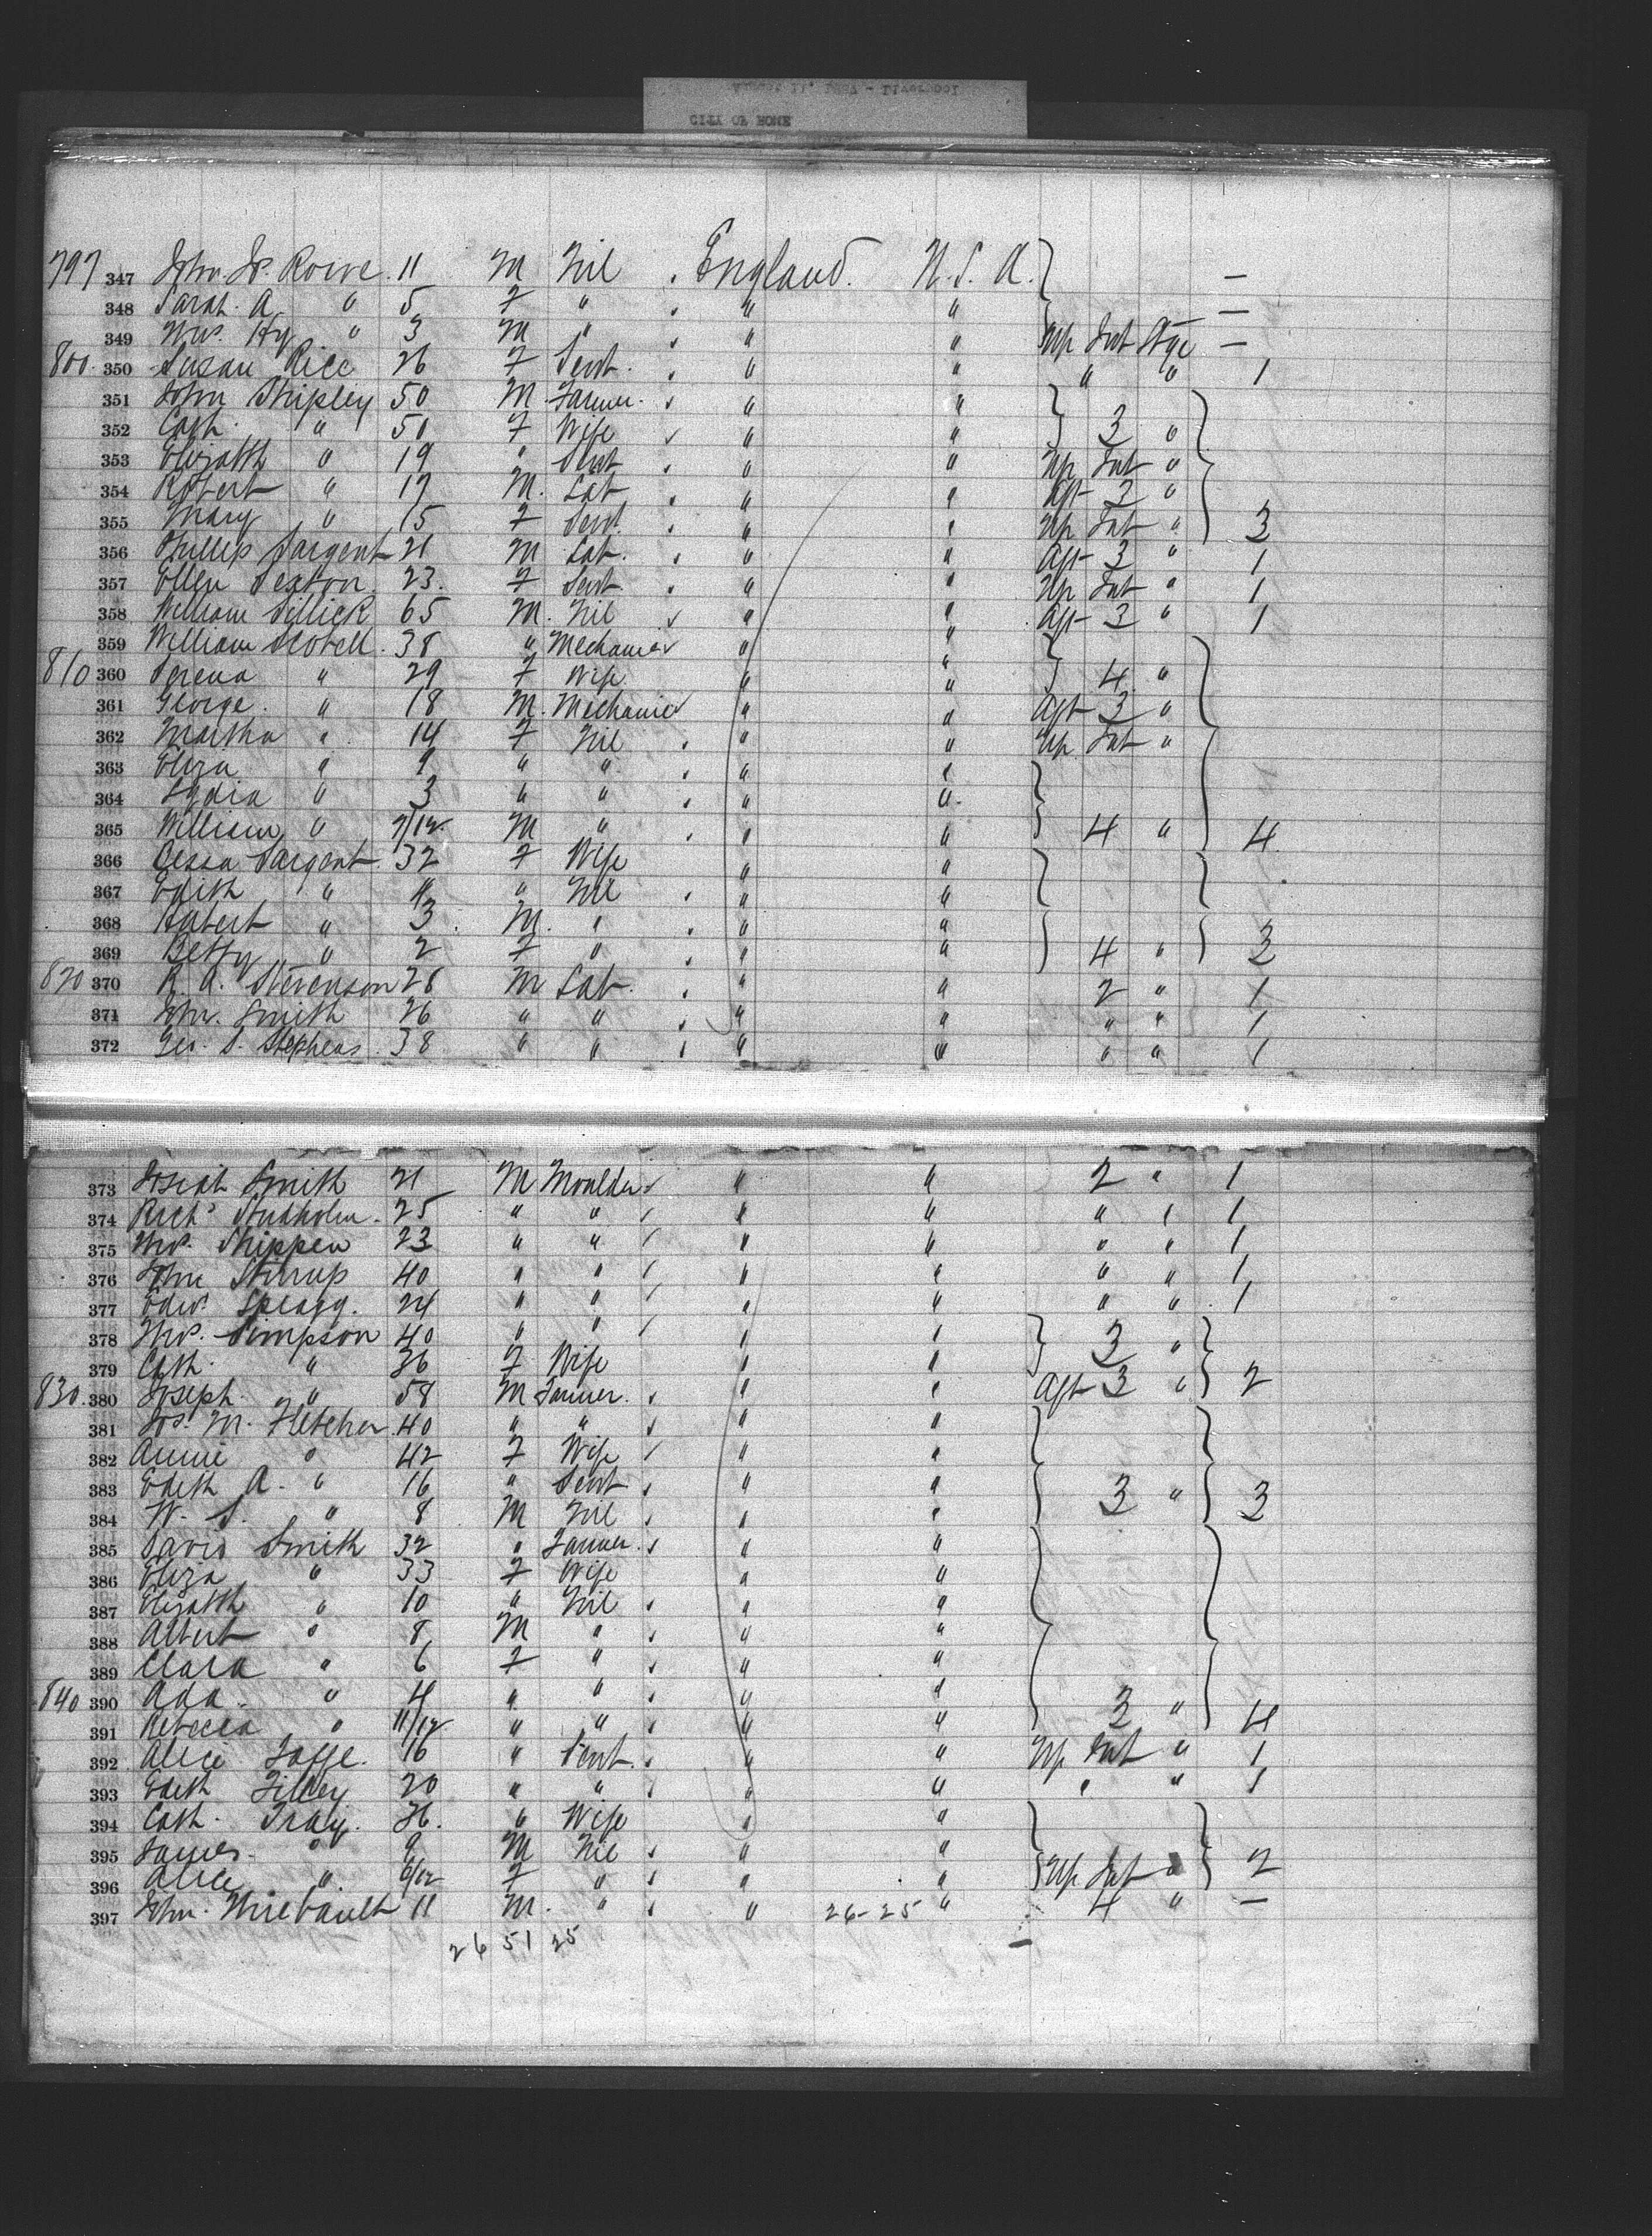 CITY OF ROME
797 347 John. W. Rowe. 11 M Nil England. U. S. A.  —
348 Sarah. A. " 5 F " " " —
349 Wm. Hy " 3 M " " " Up Int Stge —
800. 350 Susan Rice 26 F Servt. " " " " 1
351 John Shipley 50 M. Farmer. " "
352 Cath. " 50 F Wife " " 3 "
353 Elizabth " 19 " Servt " " Up Int "
354 Robert " 17 M. Lab " " Aft 3 "
355 Mary " 15 F Servt. " " Up Int " 3
356 Phillip Sargent 21 M Lab. " " Aft 3 " 1
357 Ellen Sexton. 23. F Servt. " " Up Int " 1
358 William Sillick 65 M. Nil " " Aft 3 " 1
359 William Scobell. 38 " Mechanic " "
810 360 Serena " 29 F Wife " " 4 "
361 George. " 18 M. Mechanic " " Aft 3 "
362 Martha " 14 F Nil " " Up Int "
363 Eliza " 9 " " " "
364 Lydia " 3 " " " "
365 William " 7/12 M " " " 4 " 4
366 Sargent. 32 F Wife " "
367 Edith " 11 " Nil " "
368 Hubert " 3 M. " " "
369 Betty " 2 F " " " 4 " 3
820 370 R. A. Stevenson 26 M Lab. " " 2 " 1
371 Jno. Smith 26 " " " " " " 1
372 Geo. S. Stephens. 38 " " " " " " 1
373 Josiah Smith 21 M Moulder " " 2 " 1
374 Richd Stubholm. 25 " " " " " " 1
375 Wm. Shippen 23 " " " " " " 1
376 Jno Stirrup 40 " " " " " " 1
377 Edw. Spragg. 24 " " " " " " 1
378 Thos. Simpson 40 " " " " 3 "
379 Cath. " 36 F Wife " "
830. 380 Joseph. " 58 M Farmer. " " Aft 3 " 2
381 Jos. M. Fletcher. 40 " " " "
382 Annie " 42 F Wife " "
383 Edith A. " 16 " Servt " "
384 W. S. " 8 M Nil " " 3 " 3
385 David Smith 32 " Farmer. " "
386 Eliza " 33 F Wife " "
387 Elizabth " 10 " Nil " "
388 Albert " 8 M " " "
389 Clara " 6 F " " "
840 390 Ada. " 4 " " " "
391 Rebecca " 11/12 " " " " 3 " 4
392 Alice 16 " Servt. " " Up Int " 1
393 Edith Tilley 20 " " " " " " 1
394 Cath. 36. " Wife " "
395 James. " 9 M Nil " "
396 Alice " 6/12 F " " " Up Int " 2
397 Jno. Thiebault 11 M. " " 26-25 " 4 " —
26 51 25 —